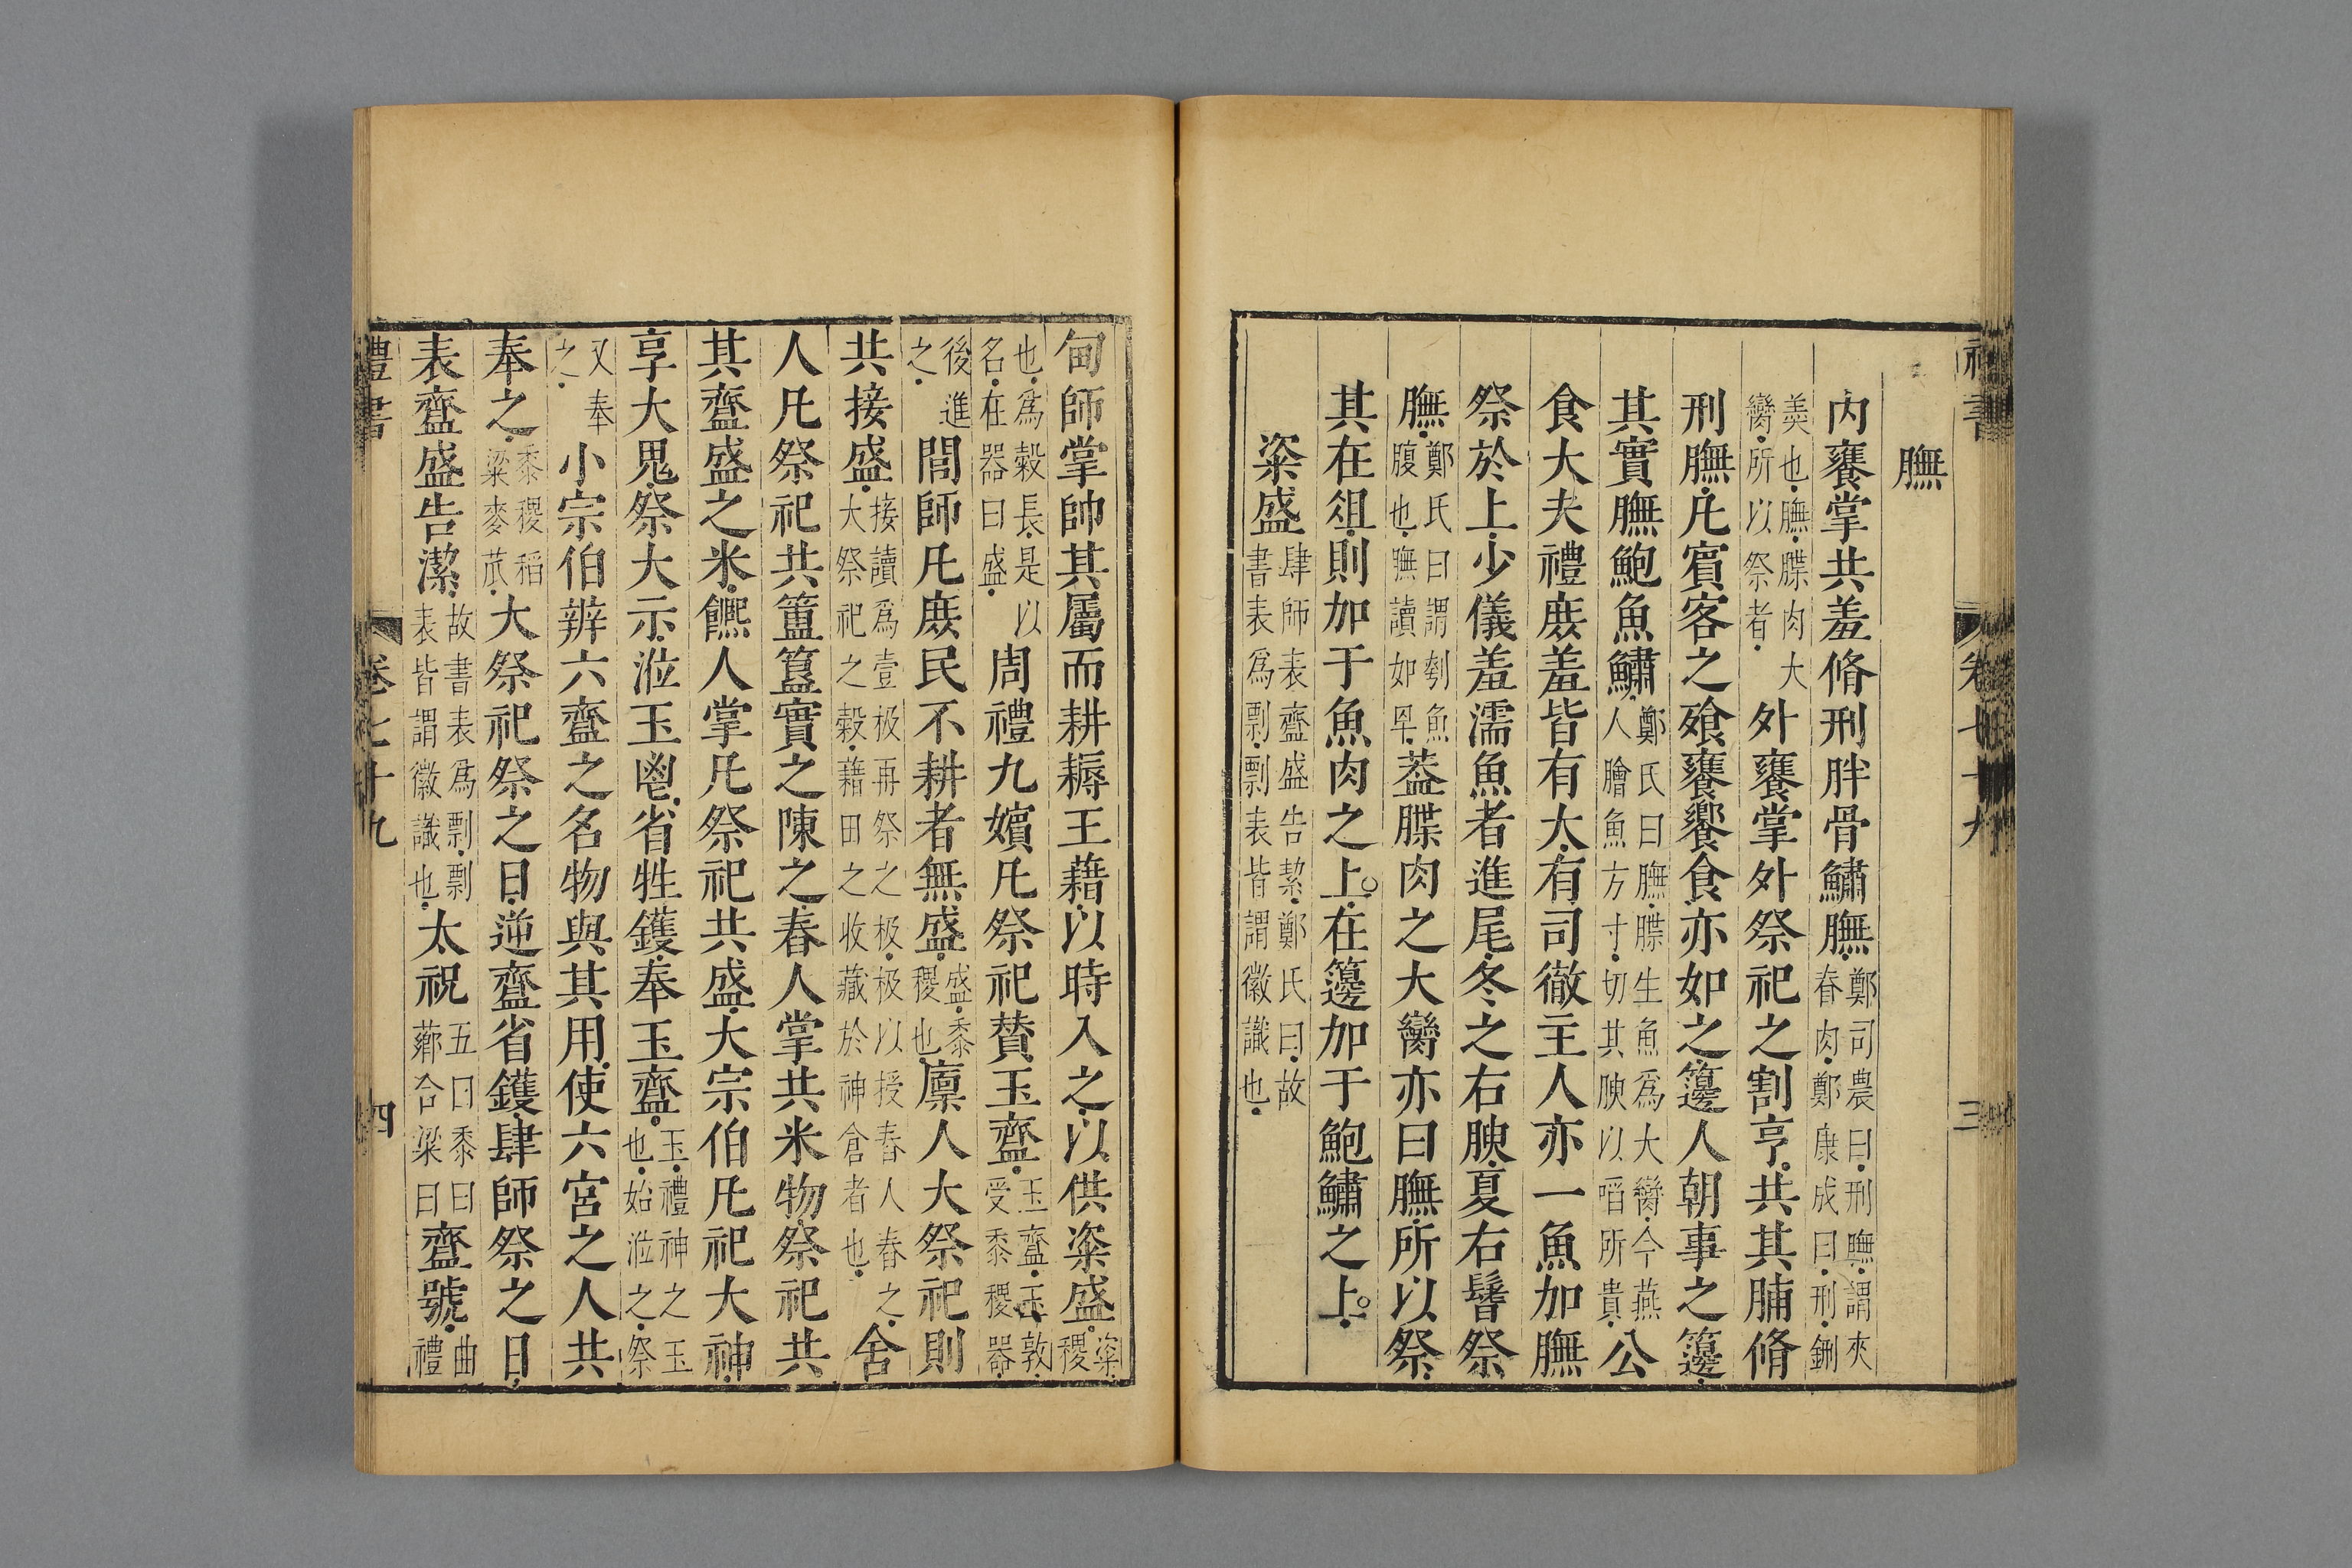 禮書 卷七十九 三
膴
內饔掌共羞脩刑胖骨鱐膴鄭司農曰刑膴謂夾舂肉鄭康成曰刑鉶
羹也膴䐑肉大臠所以祭者外饔掌外祭祀之割亨共其脯脩
刑膴凡賓客之飧饔饗食亦如之籩人朝事之籩
其實膴鮑魚鱐鄭氏曰膴䐑生魚爲大臠今燕人膾魚方寸切其腴以㗖所貴公
食大夫禮庶羞皆有大有司徹主人亦一魚加膴
祭於上少儀羞濡魚者進尾冬之右腴夏右鬐祭
膴鄭氏曰謂刳魚腹也膴讀如冔蓋䐑肉之大臠亦曰膴所以祭
其在俎則加于魚肉之上在籩加于鮑鱐之上
粢盛肆師表齍盛告絜鄭氏曰故書表爲剽剽表皆謂徽識也
甸師掌帥其屬而耕耨王藉以時入之以供粢盛粢稷
也爲穀長是以名在器曰盛周禮九嬪凡祭祀贊玉齍玉齍玉敦受黍稷器
後進之閭師凡庶民不耕者無盛盛黍稷也廩人大祭祀則
共接盛接讀爲壹扱再祭之扱扱以授舂人舂之大祭祀之穀藉田之收藏於神倉者也舍
人凡祭祀共簠簋實之陳之舂人掌共米物祭祀共
其齍盛之米饎人掌凡祭祀共盛大宗伯凡祀大神
享大鬼祭大示涖玉鬯省牲鑊奉玉齍玉禮神之玉也始涖之祭
又奉之小宗伯辨六齍之名物與其用使六宮之人共
奉之黍稷稻粱麥苽大祭祀祭之日逆齍省鑊肆師祭之日
表齍盛告潔故書表爲剽剽表皆謂徽識也太祝五曰黍曰薌合粱曰齍號曲禮
禮書 卷七十九 四